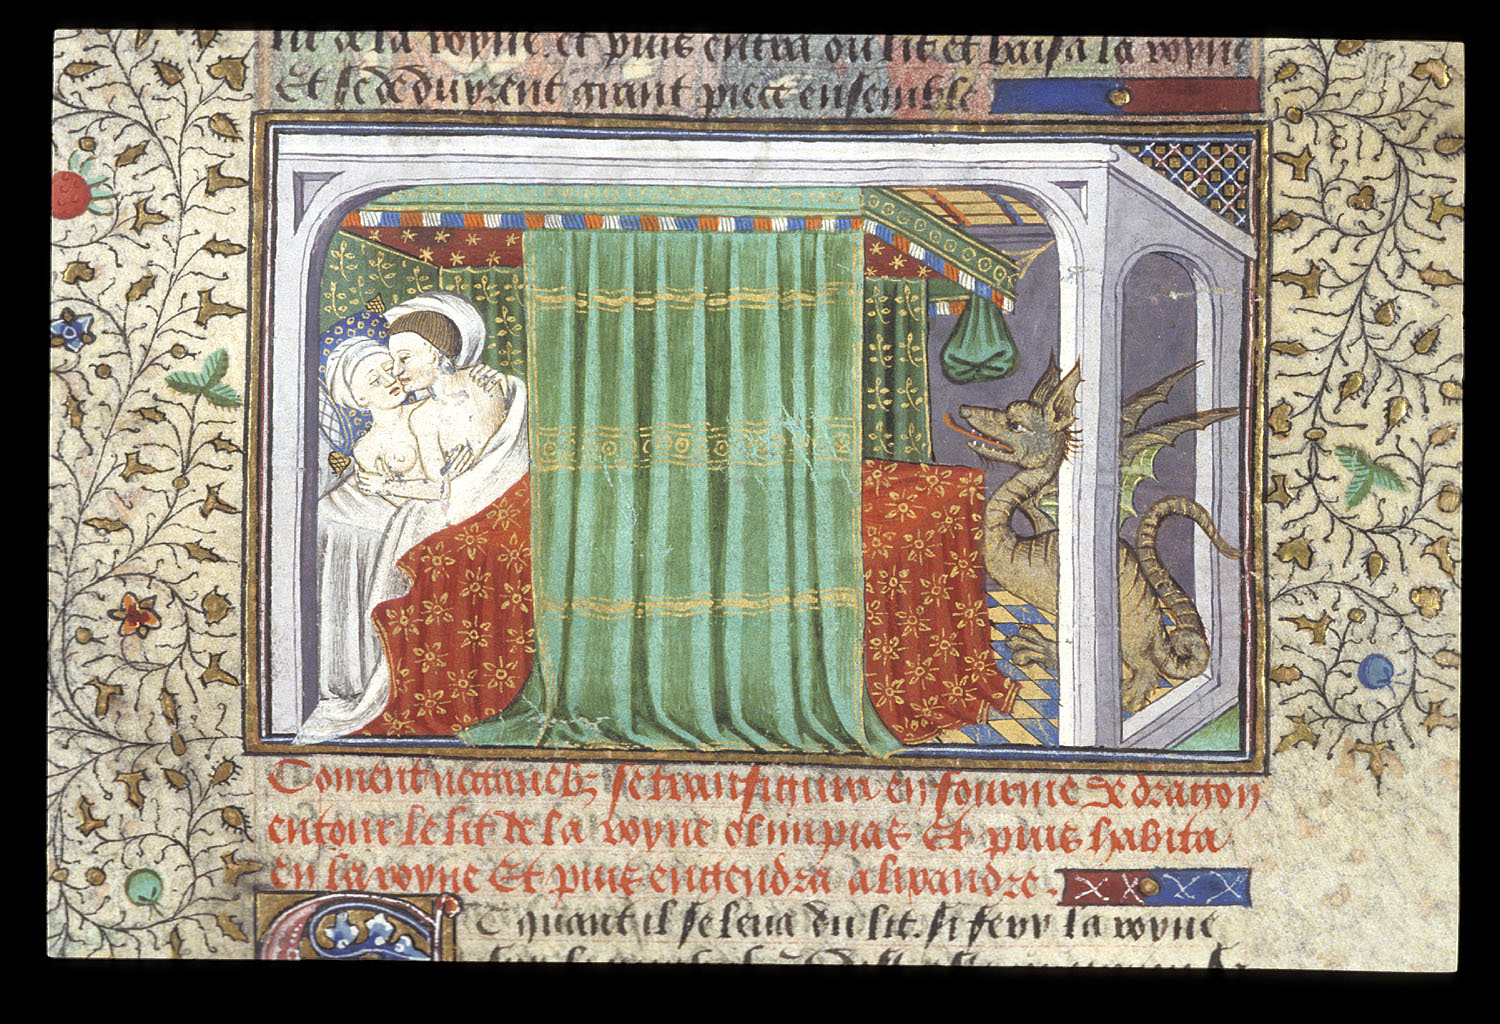 lit de la royne. et puis entra ou lit et baisa la royne
Et se deduyrent grant piece ensemble
Coment nectanebz se transfigura en fourme de dragon
entour le lit de la royne olimpias et puis habita
en la royne Et puis engendra alixandre.
Et quant il se leua du lit. si fery la royne